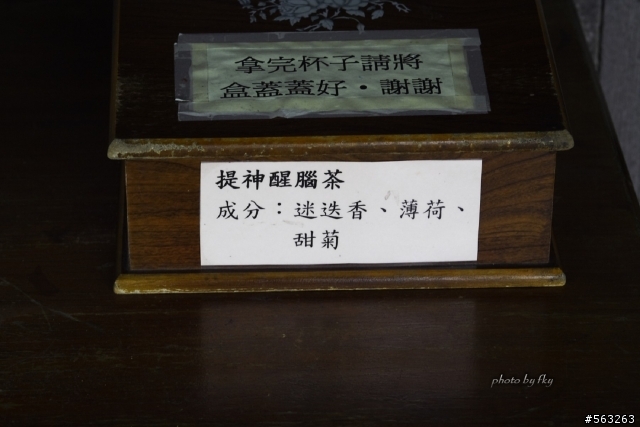 拿完杯子請將
盒蓋蓋好·謝謝
提神醒腦茶
成分：迷迭香、薄荷、
甜菊
photo by fky
#563263